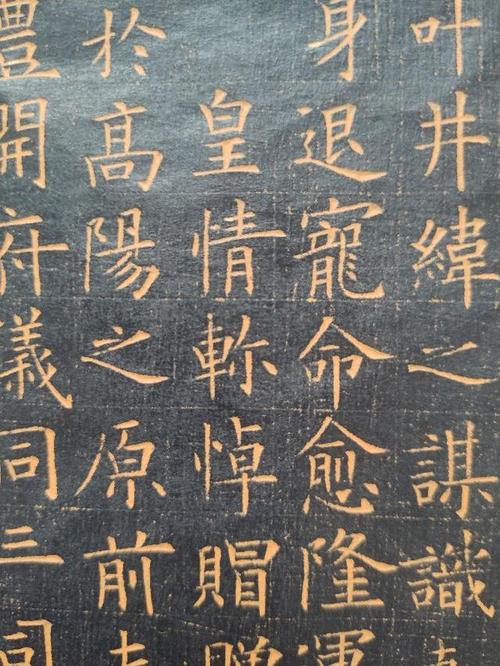 叶井緯之謀識
身退寵命愈隆運
皇情軫悼賵贈
於髙陽之原前
開府儀同三司